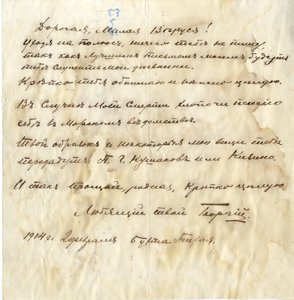 57
Дорогая, милая Веруся!
Уходя на полюс, ничего тебе не пишу
так как лучшим письмом моим будут
тебе служить мои дневники.
Крѣпко тебя обнимаю и нѣжно цѣлую.
Въ случаѣ моей смерти хлопочи пенсію
себѣ въ Морском вѣдомствѣ.
Твой образокъ и некоторыя мои вещи тебѣ
передадутъ П. Г. Кушаковъ или
И так прощай, родная, Крѣпко цѣлую.
Любящій твой Георгій.
1914 г. 2 февраля Бухта Тихая.